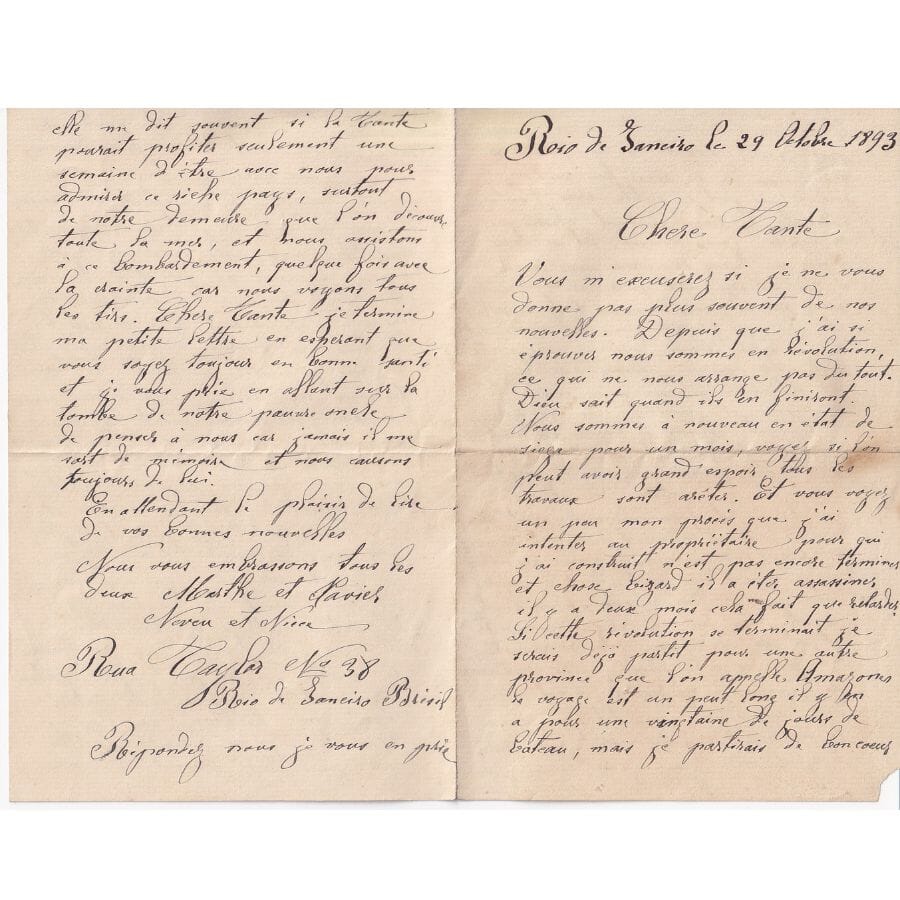 Rio de Janeiro le 29 Octobre 1893
Chere Tante
Vous m'excuserez si je ne vous
donne pas plus souvent de nos
nouvelles. Depuis que j'ai si
éprouver nous sommes en révolution,
ce qui ne nous arrange pas du tout.
Dieu sait quand ils en finiront.
Nous sommes à nouveau en état de
siege pour un mois, voyez si l'on
peut avoir grand espoir tous les
travaux sont arêter. Et vous voyez
un peu mon procès que j'ai
intenter au propriétaire pour qui
j'ai construit n'est pas encore terminer
et chose bizard il a éter assassiner
il y a deux mois cela fait que retarder
Si cette révolution se terminait je
serais déjà partit pour une autre
province que l'on appelle Amazones
le voyage est un peut long il y en
a pour une vingtaine de jours de
bateau, mais je partirais de bon coeur
elle me dit souvent si la Tante
pourait profiter seulement une
semaine d'être avec nous pour
admirer ce riche pays, surtout
de notre demeure que l'on découvre
toute la mer, et nous assistons
à ce bombardement, quelque fois avec
la crainte car nous voyons tous
les tirs. Chere Tante je termine
ma petite lettre en esperant que
vous soyez toujour en bonne santé
et je vous prie en allant sur la
tombe de notre pauvre oncle
de penser à nous car jamais il me
sort de mémoire et nous causons
toujours de lui.
En attendant le plaisir de lire
de vos bonnes nouvelles
Nous vous embrassons tous les
deux Marthe et Xavier
Neveu et Niece
Rua Taylor No 38
Rio de Janeiro Brésil
Répondez nous je vous en prie